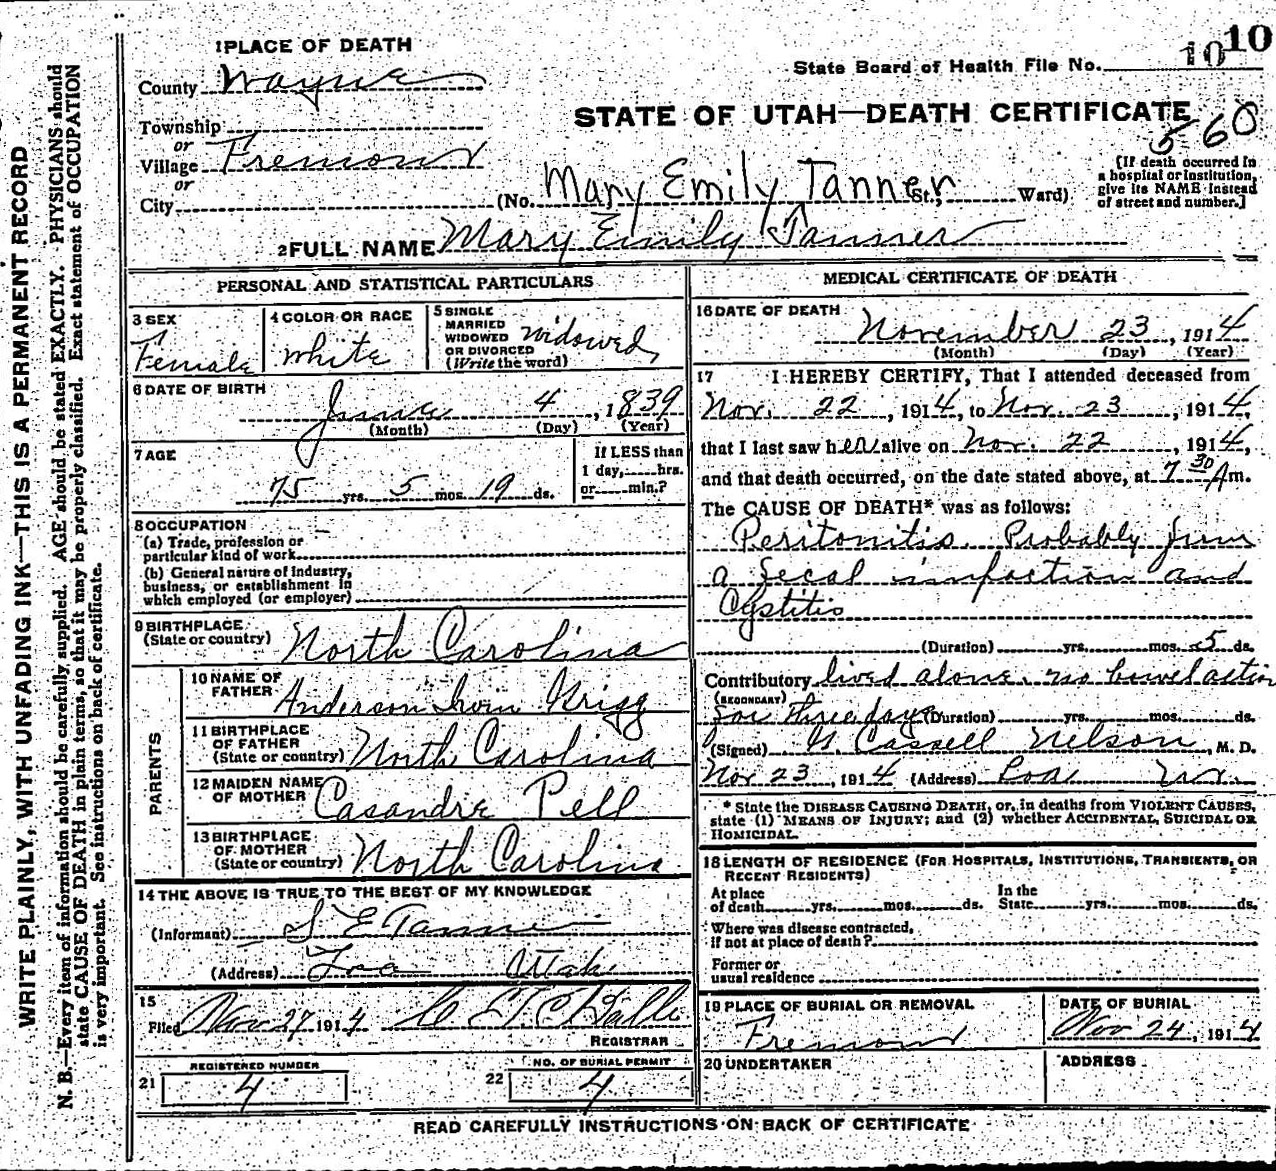 1 PLACE OF DEATH
10 10
State Board of Health File No.
County Wayne
STATE OF UTAH—DEATH CERTIFICATE
560
Township
or
Village Fremont
or
City (No. Mary Emily Tanner St.; Ward)
[If death occurred in
a hospital or institution,
give its NAME instead
of street and number.]
2 FULL NAME Mary Emily Tanner
PERSONAL AND STATISTICAL PARTICULARS
3 SEX
Female
4 COLOR OR RACE
White
5 SINGLE
MARRIED
WIDOWED
OR DIVORCED
(Write the word)
Widowed
6 DATE OF BIRTH
June 4, 1839
(Month) (Day) (Year)
7 AGE
75 yrs. 5 mos. 19 ds.
If LESS than
1 day, hrs.
or min.?
8 OCCUPATION
(a) Trade, profession or
particular kind of work
(b) General nature of industry,
business, or establishment in
which employed (or employer)
9 BIRTHPLACE
(State or country) North Carolina
PARENTS
10 NAME OF
FATHER Anderson Irvin Grigg
11 BIRTHPLACE
OF FATHER
(State or country) North Carolina
12 MAIDEN NAME
OF MOTHER Casandre Pell
13 BIRTHPLACE
OF MOTHER
(State or country) North Carolina
14 THE ABOVE IS TRUE TO THE BEST OF MY KNOWLEDGE
(Informant) S E Tanner
(Address) Loa Utah
15
Filed Nov 27, 1914
REGISTRAR
21 REGISTERED NUMBER
4
22 NO. OF BURIAL PERMIT
4
MEDICAL CERTIFICATE OF DEATH
16 DATE OF DEATH
November 23, 1914
(Month) (Day) (Year)
17 I HEREBY CERTIFY, That I attended deceased from
Nov. 22, 1914, to Nov. 23, 1914,
that I last saw her alive on Nov. 22, 1914,
and that death occurred, on the date stated above, at 7 30 A m.
The CAUSE OF DEATH* was as follows:
Peritonitis. Probably from
a fecal impaction and
Cystitis
(Duration) yrs. mos. 5 ds.
Contributory lived alone. no bowel action
(SECONDARY)
for three days (Duration) yrs. mos. ds.
(Signed) Cassell Nelson, M. D.
Nov 23, 1914 (Address) Loa Ut.
* State the DISEASE CAUSING DEATH, or, in deaths from VIOLENT CAUSES,
state (1) MEANS OF INJURY; and (2) whether ACCIDENTAL, SUICIDAL OR
HOMICIDAL.
18 LENGTH OF RESIDENCE (FOR HOSPITALS, INSTITUTIONS, TRANSIENTS, OR
RECENT RESIDENTS)
At place
of death yrs. mos. ds.
In the
State yrs. mos. ds.
Where was disease contracted,
if not at place of death?
Former or
usual residence
19 PLACE OF BURIAL OR REMOVAL
Fremont
DATE OF BURIAL
Nov 24, 1914
20 UNDERTAKER
ADDRESS
READ CAREFULLY INSTRUCTIONS ON BACK OF CERTIFICATE
WRITE PLAINLY, WITH UNFADING INK—THIS IS A PERMANENT RECORD
N. B.—Every item of information should be carefully supplied. AGE should be stated EXACTLY. PHYSICIANS should
state CAUSE OF DEATH in plain terms, so that it may be properly classified. Exact statement of OCCUPATION
is very important. See instructions on back of certificate.